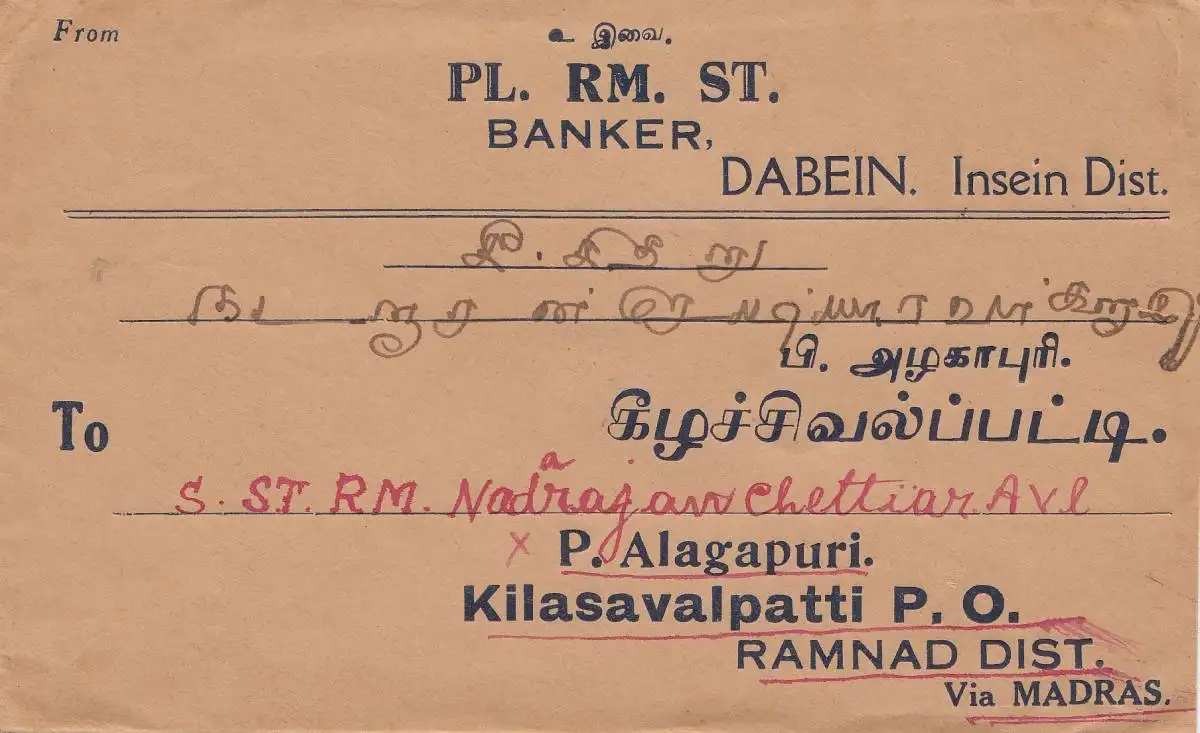 From
உ இவை.
PL. RM. ST.
BANKER,
DABEIN. Insein Dist.
பி. அழகாபுரி.
To
கீழச்சிவல்ப்பட்டி.
S. ST. R M. Nadarajan Chettiar Avl
x P. Alagapuri.
Kilasavalpatti P. O.
RAMNAD DIST.
Via MADRAS.